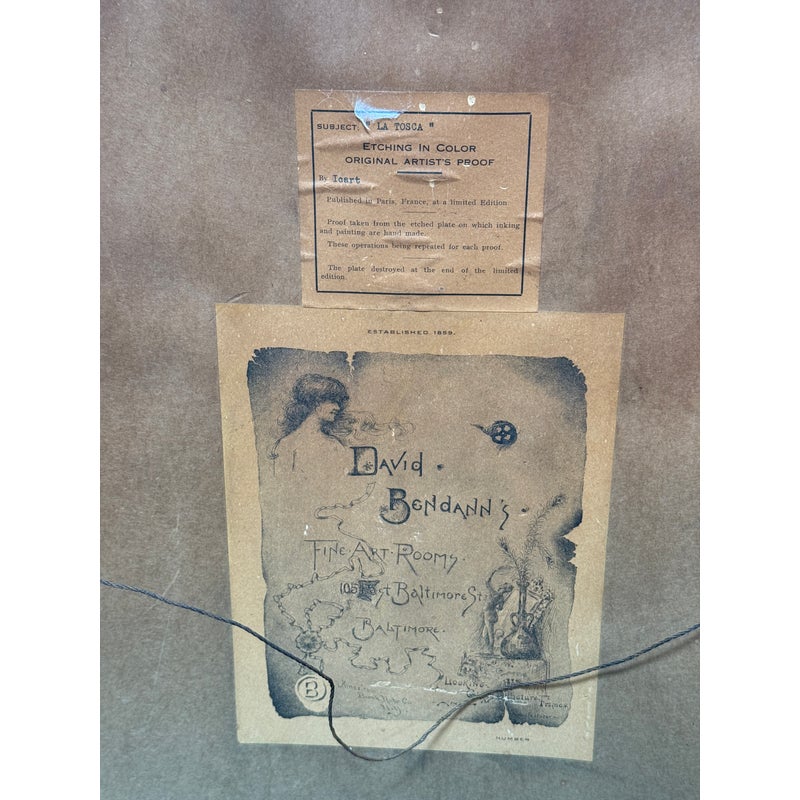 SUBJECT: " LA TOSCA "
ETCHING IN COLOR
ORIGINAL ARTIST'S PROOF
By Icart
Published in Paris, France, at a limited Edition
Proof taken from the etched plate on which inking
and painting are hand made.
These operations being repeated for each proof.
The plate destroyed at the end of the limited
edition.
ESTABLISHED 1859.
DAVID
BENDANN'S
FINE ART ROOMS.
105 East Baltimore St.
BALTIMORE.
B
Looking
Picture
Frames
NUMBER